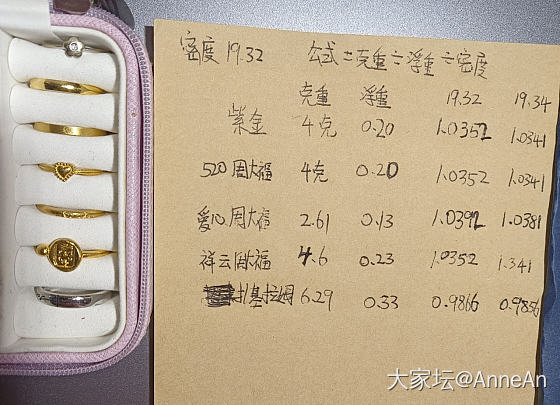 密度 19.32 公式 = 克重 ÷ 浮重 ÷ 密度
克重 浮重 19.32 19.34
紫金 4克 0.20 1.0352 1.0341
520周大福 4克 0.20 1.0352 1.0341
爱心周大福 2.61 0.13 1.0392 1.0381
祥云周大福 4.6 0.23 1.0352 1.341
扑基拉姆 6.29 0.33 0.9866 0.9856
大家坛@AnneAn